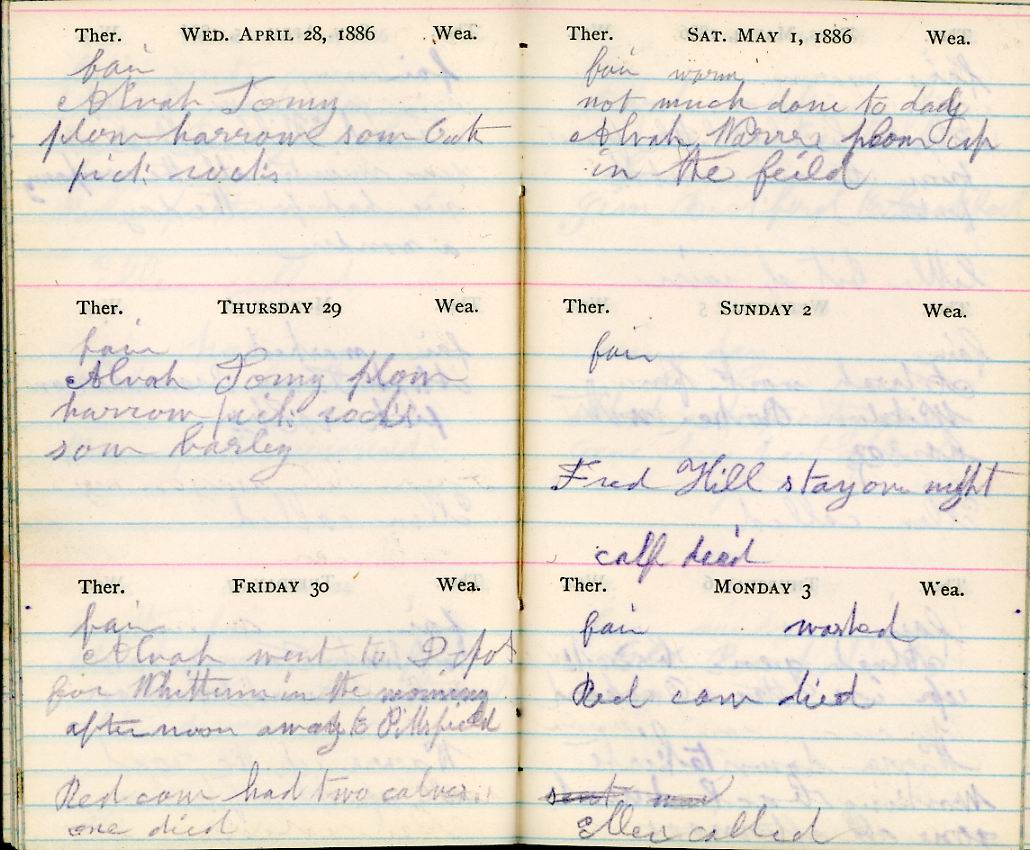 Ther. WED. APRIL 28, 1886 Wea.
fair
Alvah Tomy
plow harrow sow Oats
pick rocks
Ther. THURSDAY 29 Wea.
fair
Alvah Tomy plow
harrow pick rocks
sow barley
Ther. FRIDAY 30 Wea.
fair
Alvah went to Depot
for Whittum in the morning
after noon away to Pittsfield
Red cow had two calves
one died
Ther. SAT. MAY 1, 1886 Wea.
fair warm
not much done to dady
Alvah plow up
in the feild
Ther. SUNDAY 2 Wea.
fair
Fred Hill stay over night
calf died
Ther. MONDAY 3 Wea.
fair washed
Red cow died
sent
Ellen called